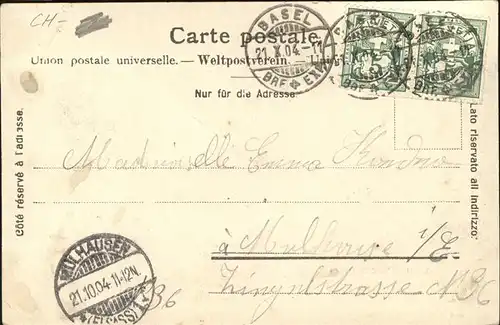 CH-
Carte postale.
Union postale universelle. — Weltpostverein. —
Nur für die Adresse.
BASEL
21.X.04.-11
BRF. EXP.
Côté réservé à l'adresse.
Lato riservato all indirizzo.
Mademoiselle Emma
à Mulhouse i/E
MÜLHAUSEN
21.10.04 11-12N.
(ELSASS) 1